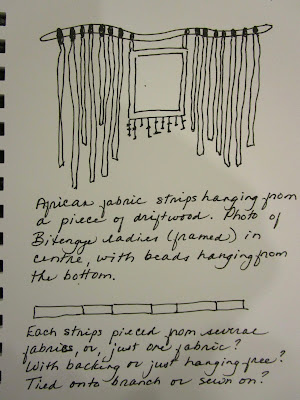 African fabric strips hanging from
a piece of driftwood. Photo of
Bitengye ladies (framed) in
centre, with beads hanging from
the bottom.
Each strips pieced from several
fabrics, or, just one fabric?
With backing or just hanging free?
Tied onto branch or sewn on?